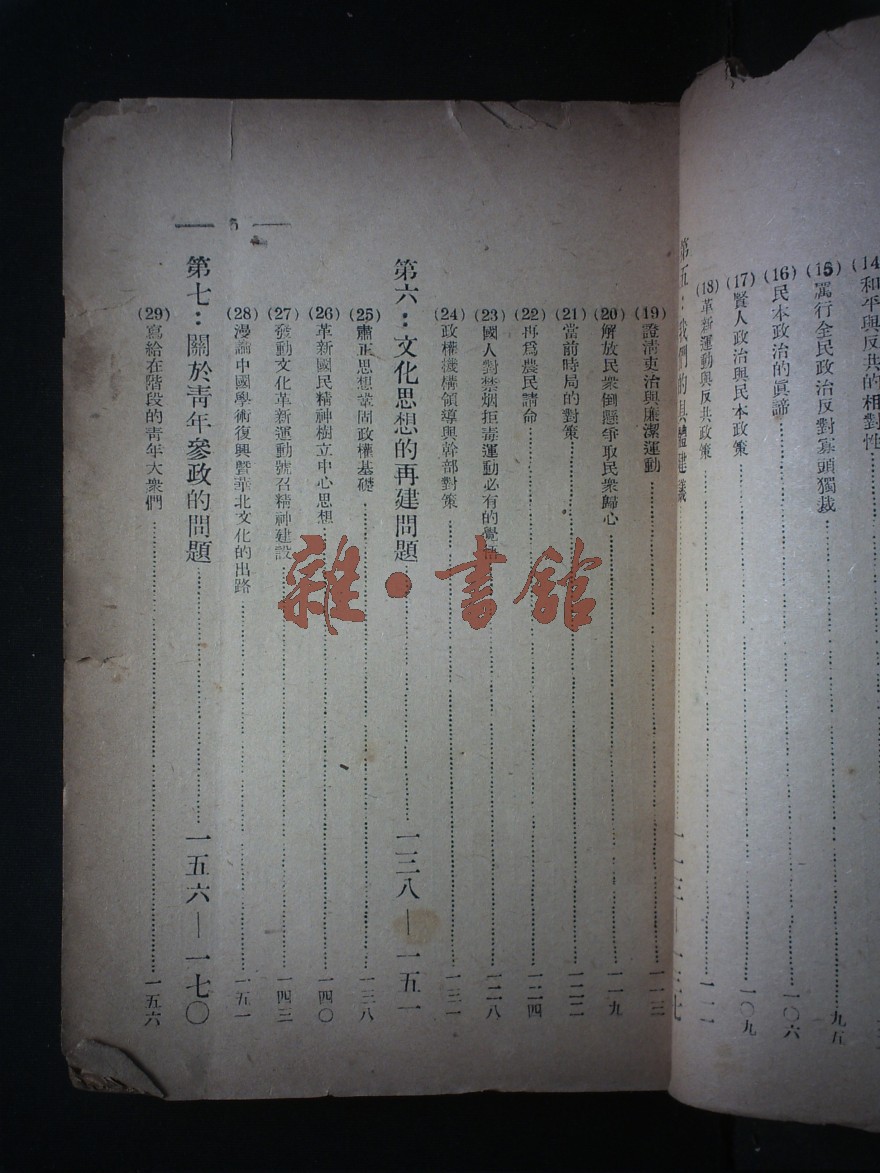 (14)和平與反共的相對性
(15)篤行全民政治反對寡頭獨裁……九五
(16)民本政治的眞諦……一〇六
(17)賢人政治與民本政策……一〇九
(18)革新運動與反共政策……一一一
第五：我們的具體建議……一一三—一三七
(19)證淸吏治與廉潔運動……一一三
(20)解放民衆倒懸爭取民衆歸心……一一九
(21)當前時局的對策……一二二
(22)再爲農民請命……一二四
(23)國人對禁烟拒毒運動必有的覺悟……一二八
(24)政權機構領導與幹部對策……一三一
第六：文化思想的再建問題……一三八—一五一
(25)肅正思想鞏固政權基礎……一三八
(26)革新國民精神樹立中心思想……一四〇
(27)發動文化革新運動號召精神建設……一四三
(28)漫論中國學術復興曁華北文化的出路……一五一
第七：關於靑年參政的問題……一五六—一七〇
(29)寫給在階段的靑年大衆們……一五六
— 5 —
雜·書館